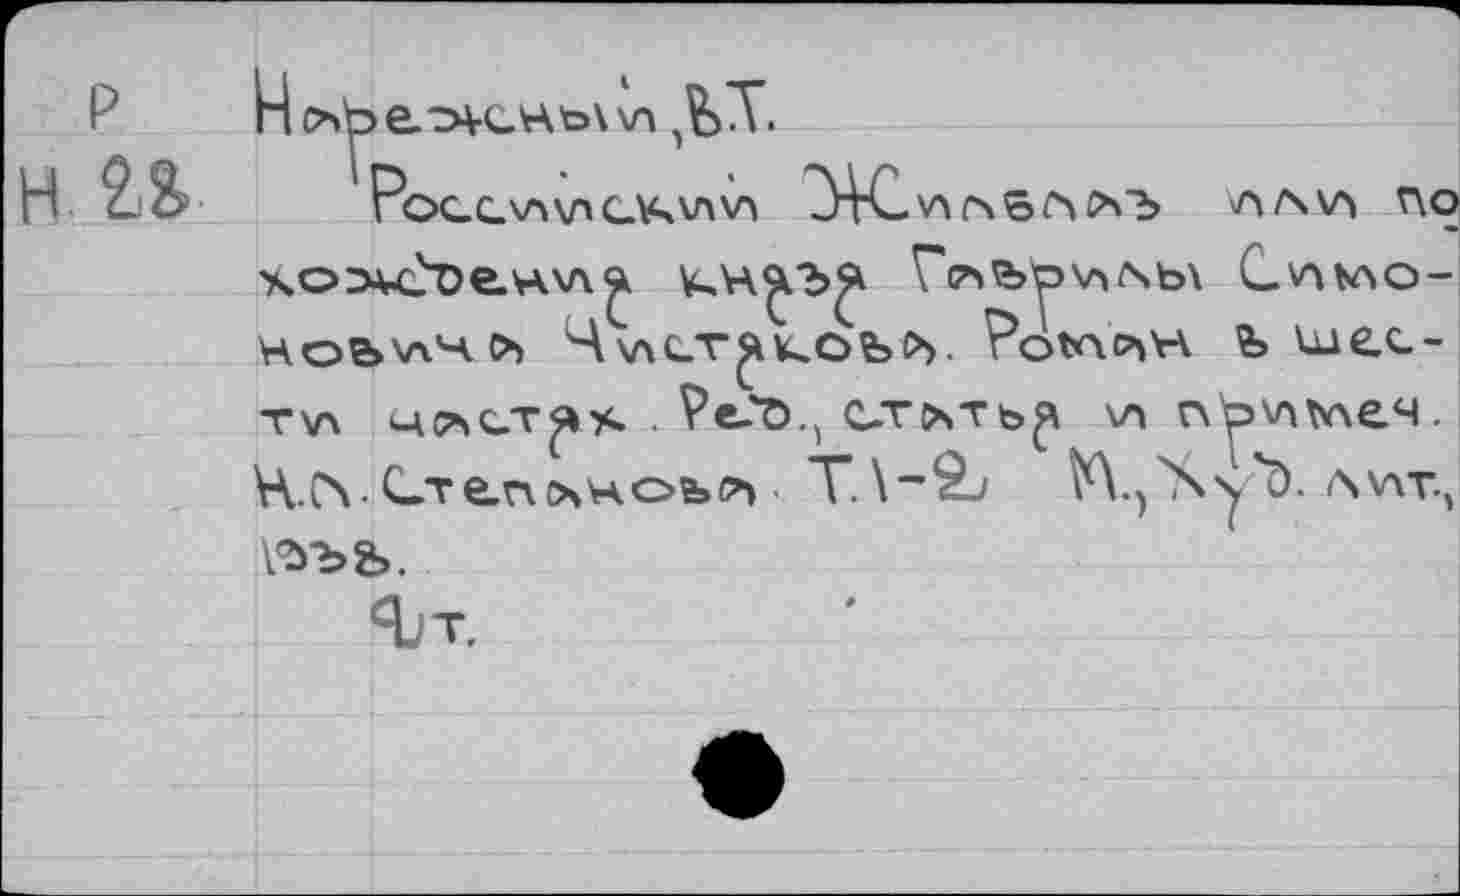 Р Нарежный, В.Т.
Н 28 Российский Жилблаз или по
хождения князя Гаврилы Симо-
новича Чистякова. Роман в шес-
ти частях. Ред., статья и примеч.
Н.Л. Степанова. Т.1-2, М., Худ. лит.,
1938.
2 т.